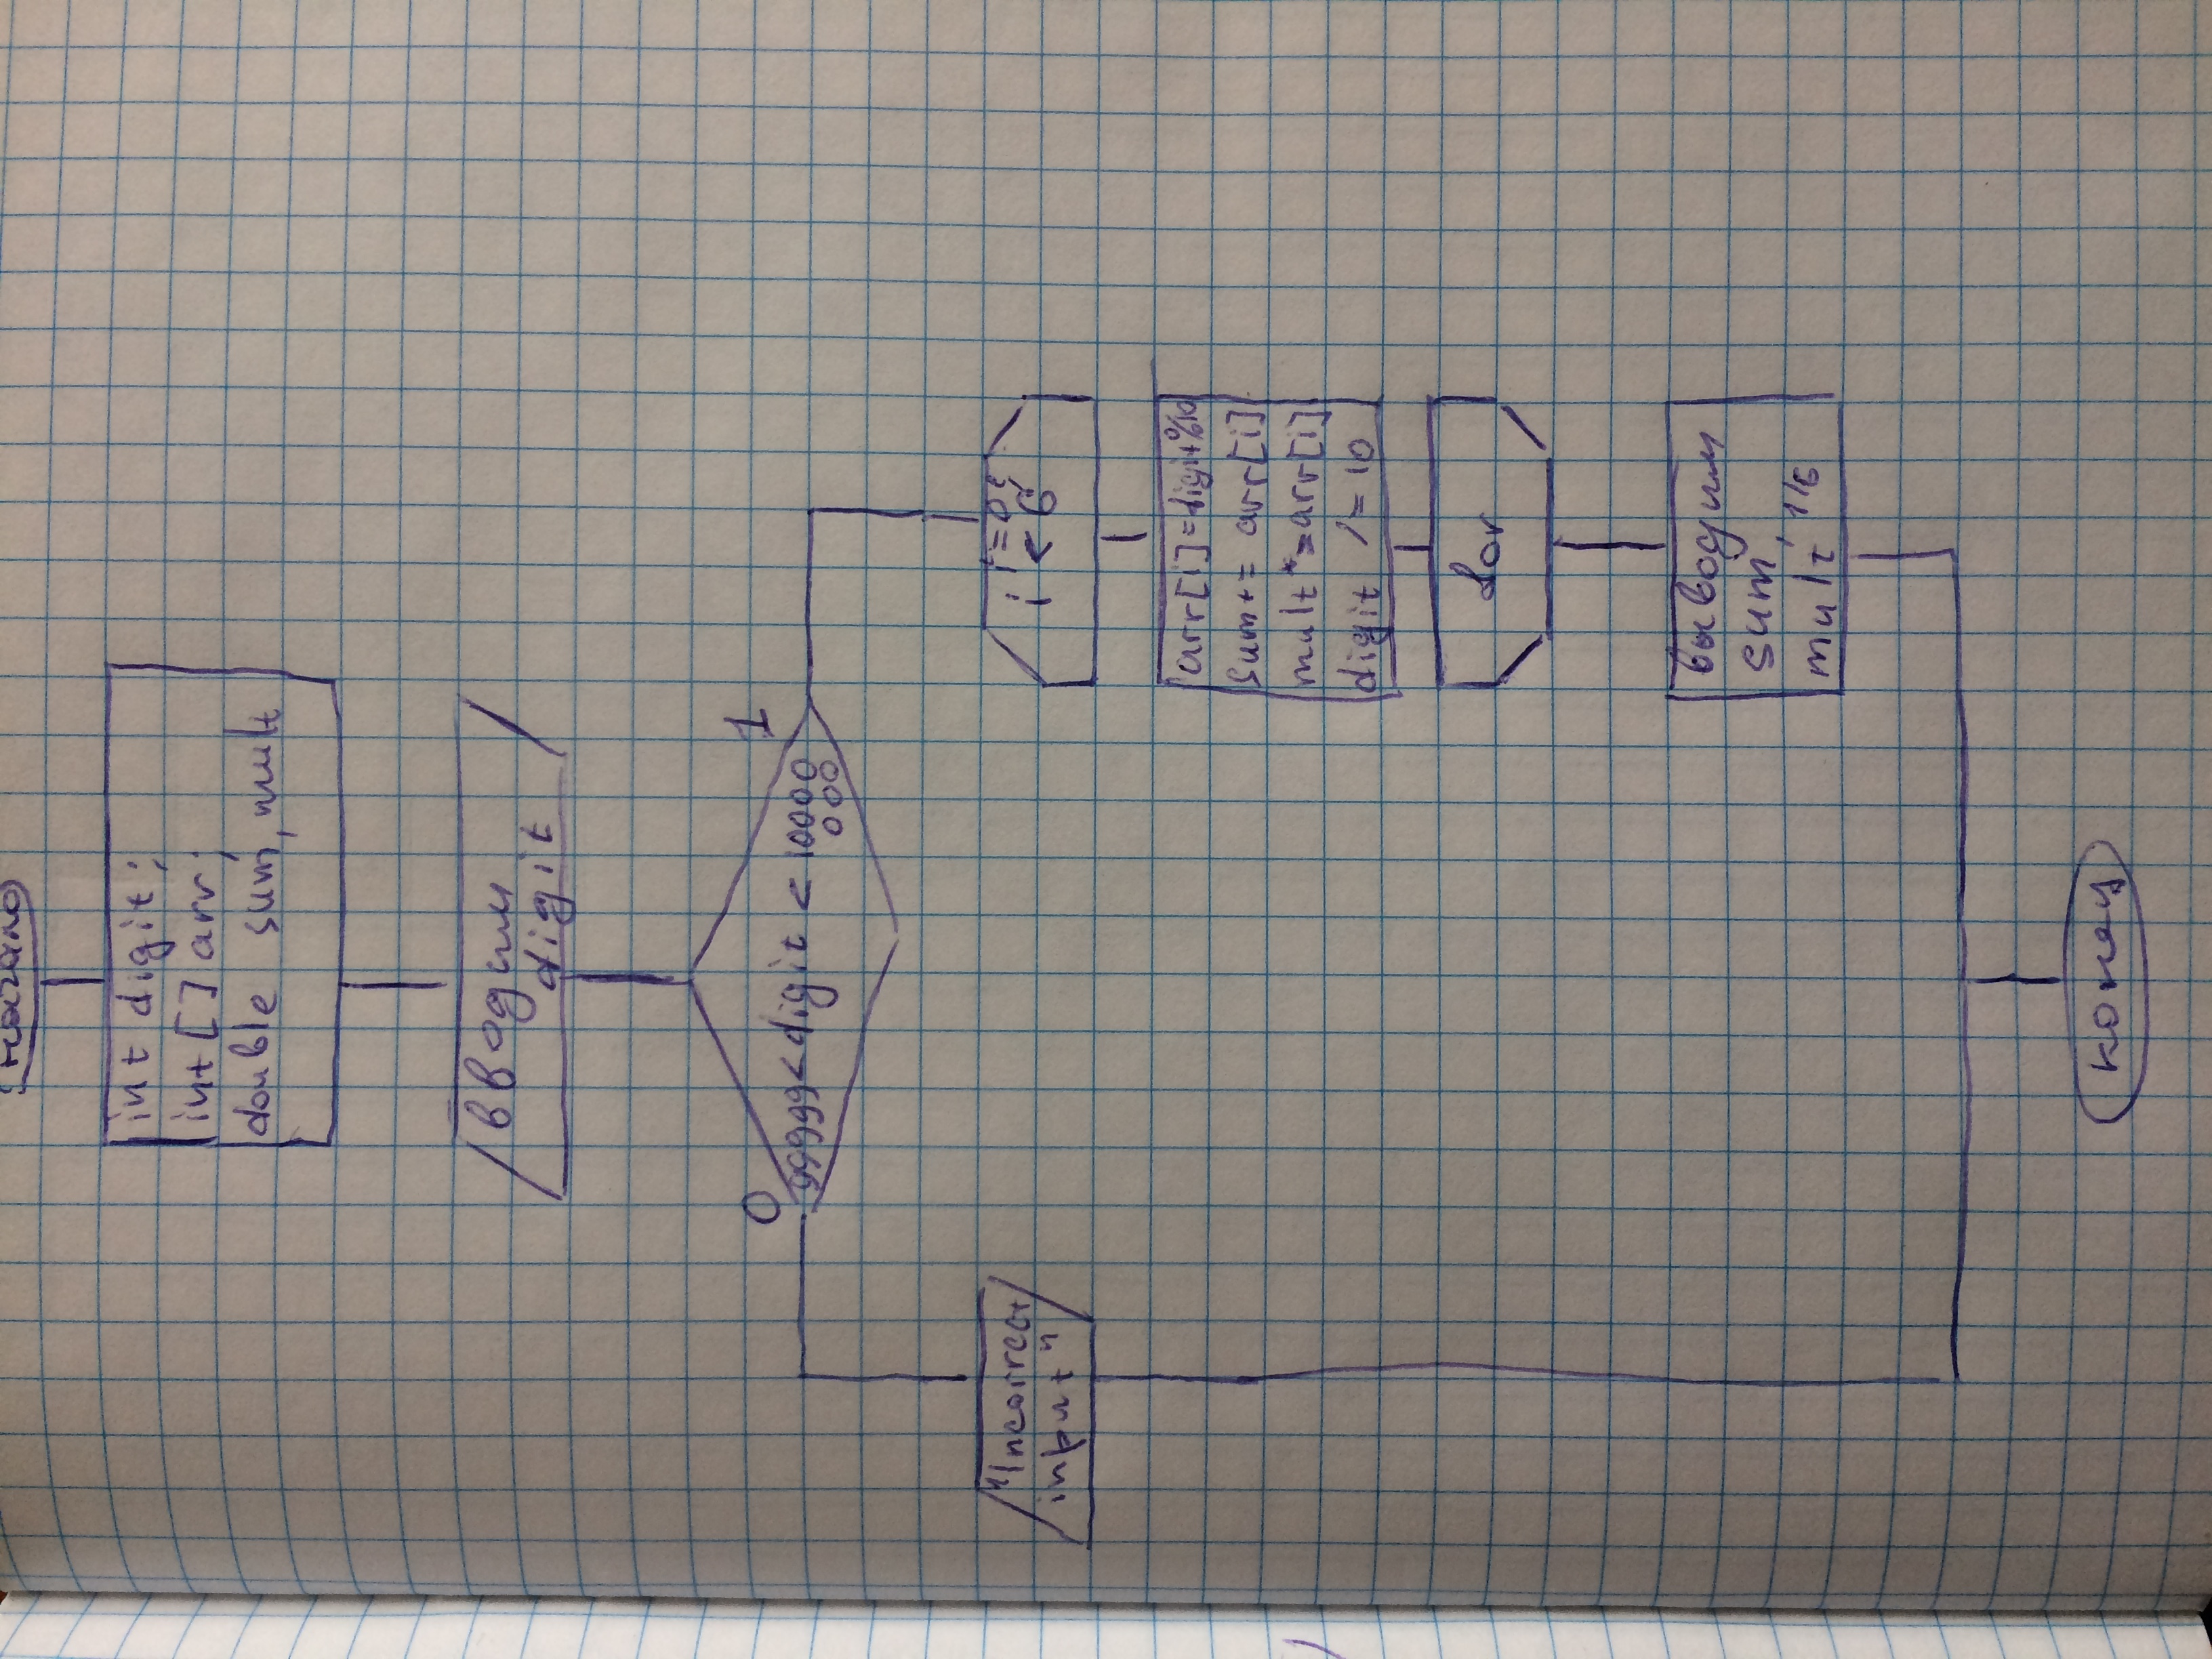 начало
int digit;
int [] arr;
double sum, mult
вводим
digit
0
1
99999 < digit < 10000
000
"Incorrect
input"
i=0;
i < 6
arr[i]=digit%10
sum+= arr[i]
mult*=arr[i]
digit /= 10
for
выводим
sum,
mult 1/6
конец